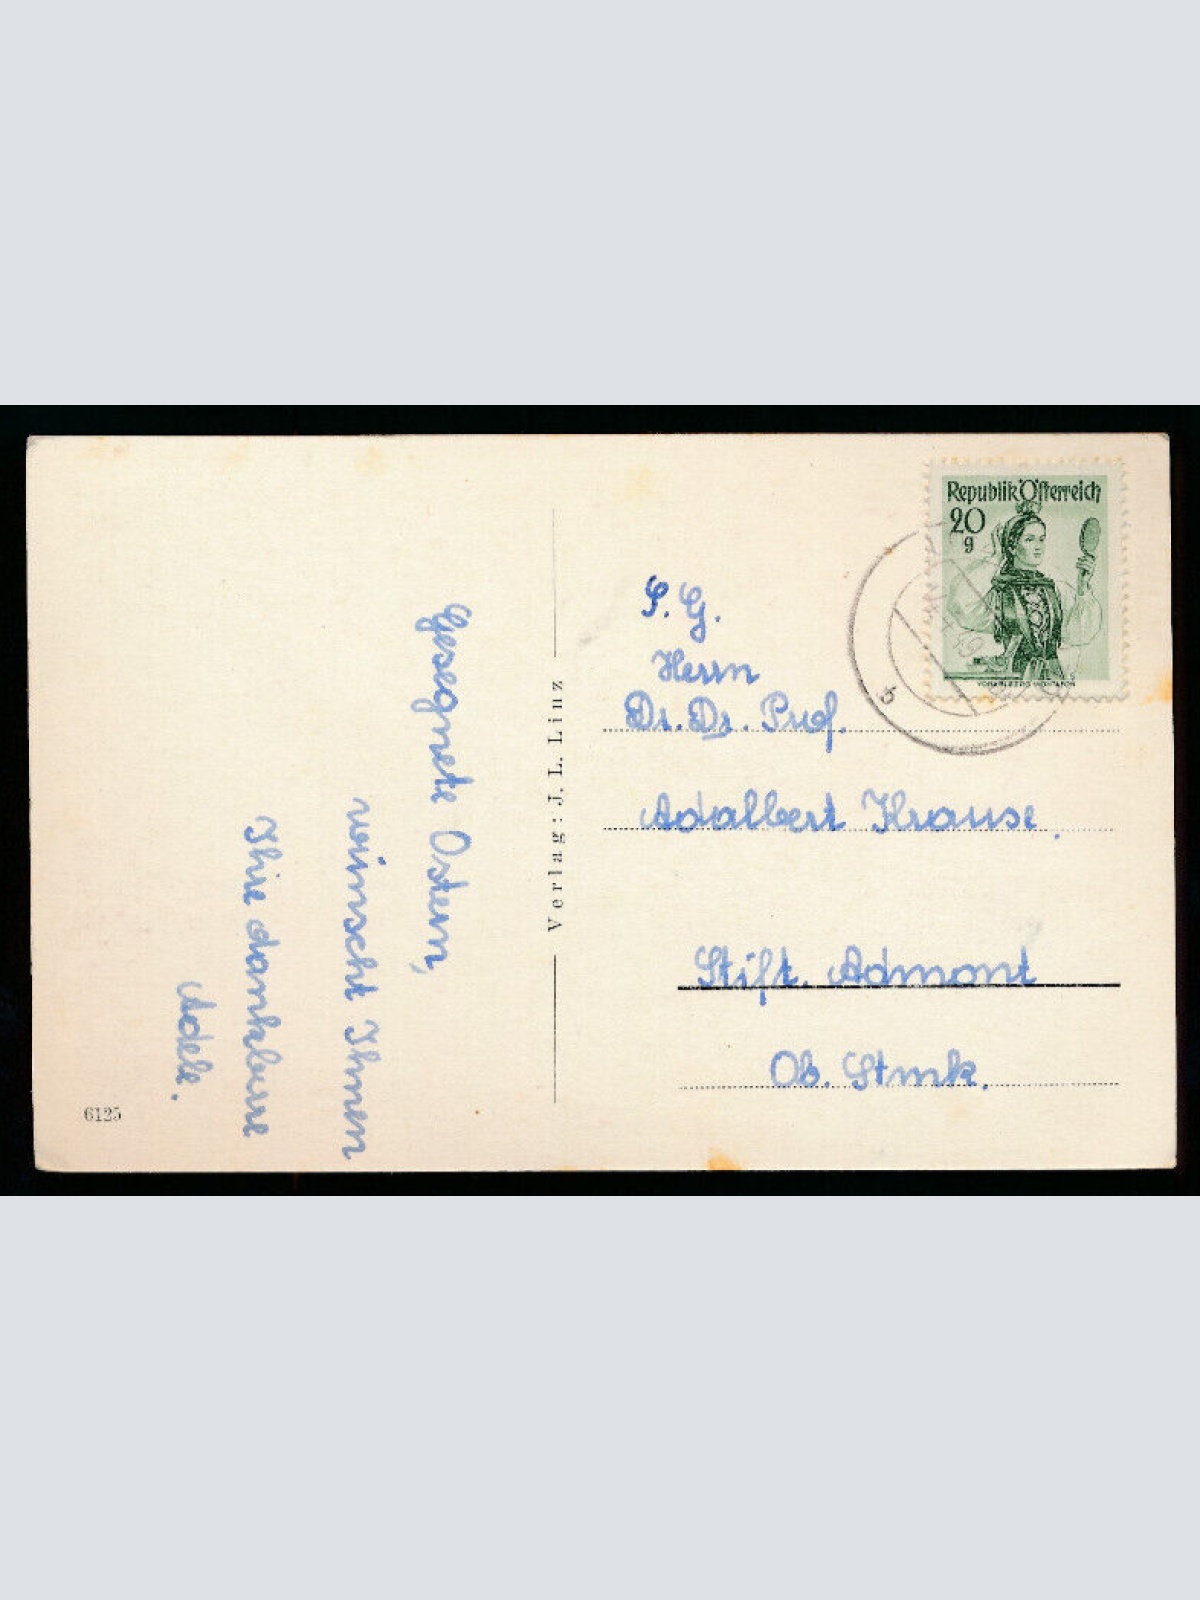 Gesegnete Ostern,
wünscht Ihnen
Ihre dankbare
Adele.
6125
Verlag: J. L. Linz
Republik Österreich
20
g
VORARLBERG MONTAFON
b
S. G.
Herrn
Dr. Dr. Prof.
Adalbert Krause.
Stift. Admont
Ob. Stmk.